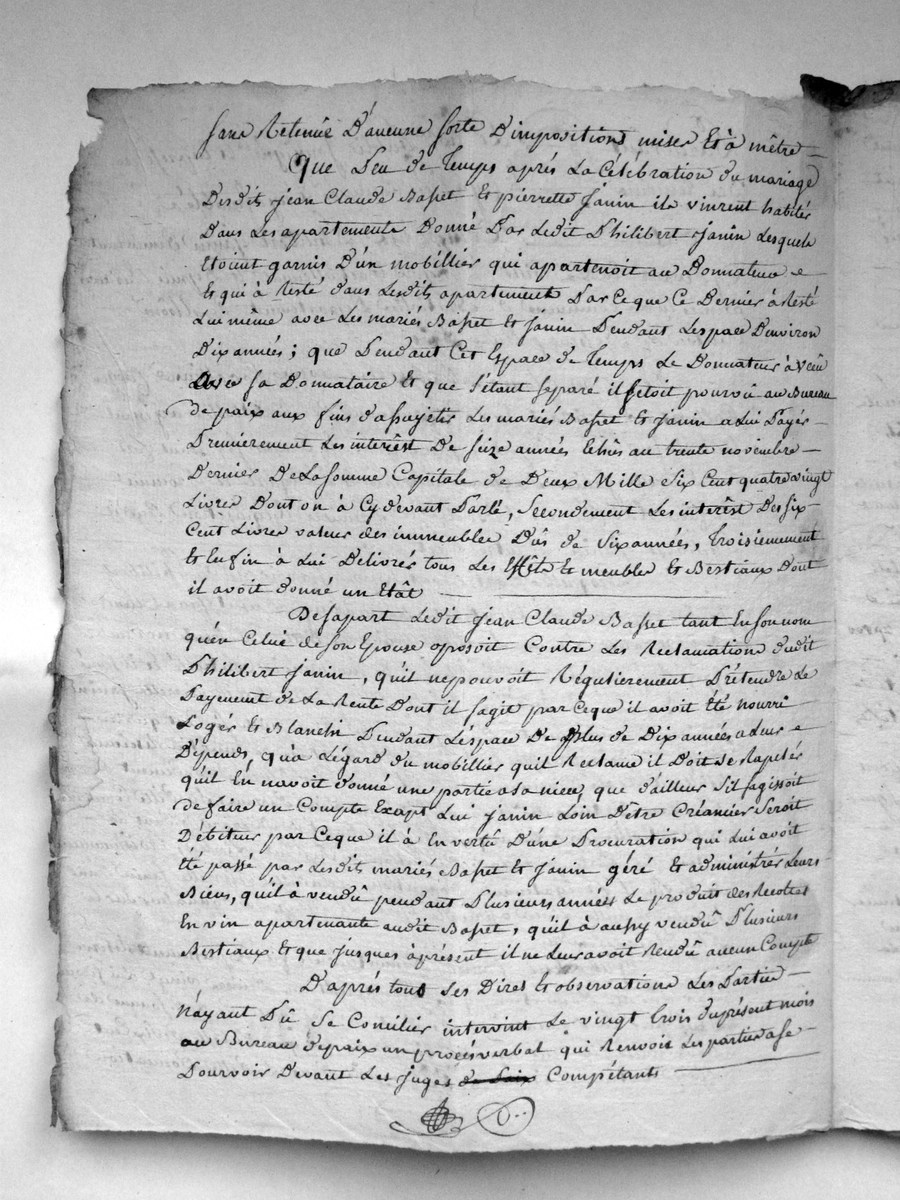 sans Retenüe D'aucune sorte D'impositions mises Et à mêtre
Que Peu de Temps après La Célébration du mariage
Desdits jean Claude Basset Et pierrette Janin ils vinrent habiter
Dans Les apartements Donné Par Ledit Philibert Janin Lesquels
Etoient garnis D'un mobillier qui apartenoit au Donnateur e
Et qui à Resté dans Lesdits apartement Par Ce que Ce Dernier à Resté
Lui même avec Les mariés Basset Et Janin Pendant L'espace D'environ
Dix années ; que Pendant Cet Espace de Temps Le Donnateur à Vécu
avec sa Donnataire Et que s'étant séparé il setoit pourvû au Bureau
de paix aux fins d'assujetir Les mariés Basset Et Janin a Lui Payer
Premierement Les interêst De seize années Echües au trente novembre
Dernier De La somme Capitale de Deux Mille Six Cent quatre vingt
Livres Dont on à Cy devant Parlé, Secondement Les interêst Des six
Cent Livres valeur des immeubles Dûs de Six années, Troisiemement
Et Enfin à Lui Delivrér tous Les Effêts Et meubles Et Bestiaux Dont
il avoit donné un Etât
De sa part Ledit Jean Claude Basset tant En son nom
qu'en Celui de son Epouse oposoit Contre Les Reclamations dudit
Philibert Janin, qu'il ne pouvoit Régulierement Prétendre Le
Payement de La Rente Dont il s'agit par Ceque il avoit Eté nourri
Logér Et Blanchi Pendant L'espace De Plus de Dix années a Leur e
Dépends, qu'a L'égard du mobillier quil Reclame il Doit se Rapelér
qu'il En navoit donné une partie a sa niece, que d'ailleur S'il sagissoit
de faire un Compte Exapt Lui Janin Loin D'être Créancier Seroit
Débiteur par Ceque il à En vertû D'une Procuration qui Lui avoit
Eté passé par Lesdits mariés Basset Et Janin géré Et administrér Leurs
Biens, qu'il à vendû pendant Plusieurs années Le produit des Recoltes
En vin apartenants audit Basset, qu'il à aussy vendû Plusieurs
Bestiaux Et que jusques àprésent il ne Leur avoit Rendû aucun Compte
D'après tous Ses Dires Et observations Les Parties
N'ayant Pû Se Concilier intervint Le vingt trois du présent mois
au Bureau de paix un procés verbal qui Renvoie Les parties a se
Pourvoir Devant Les juges de Paix Compétants